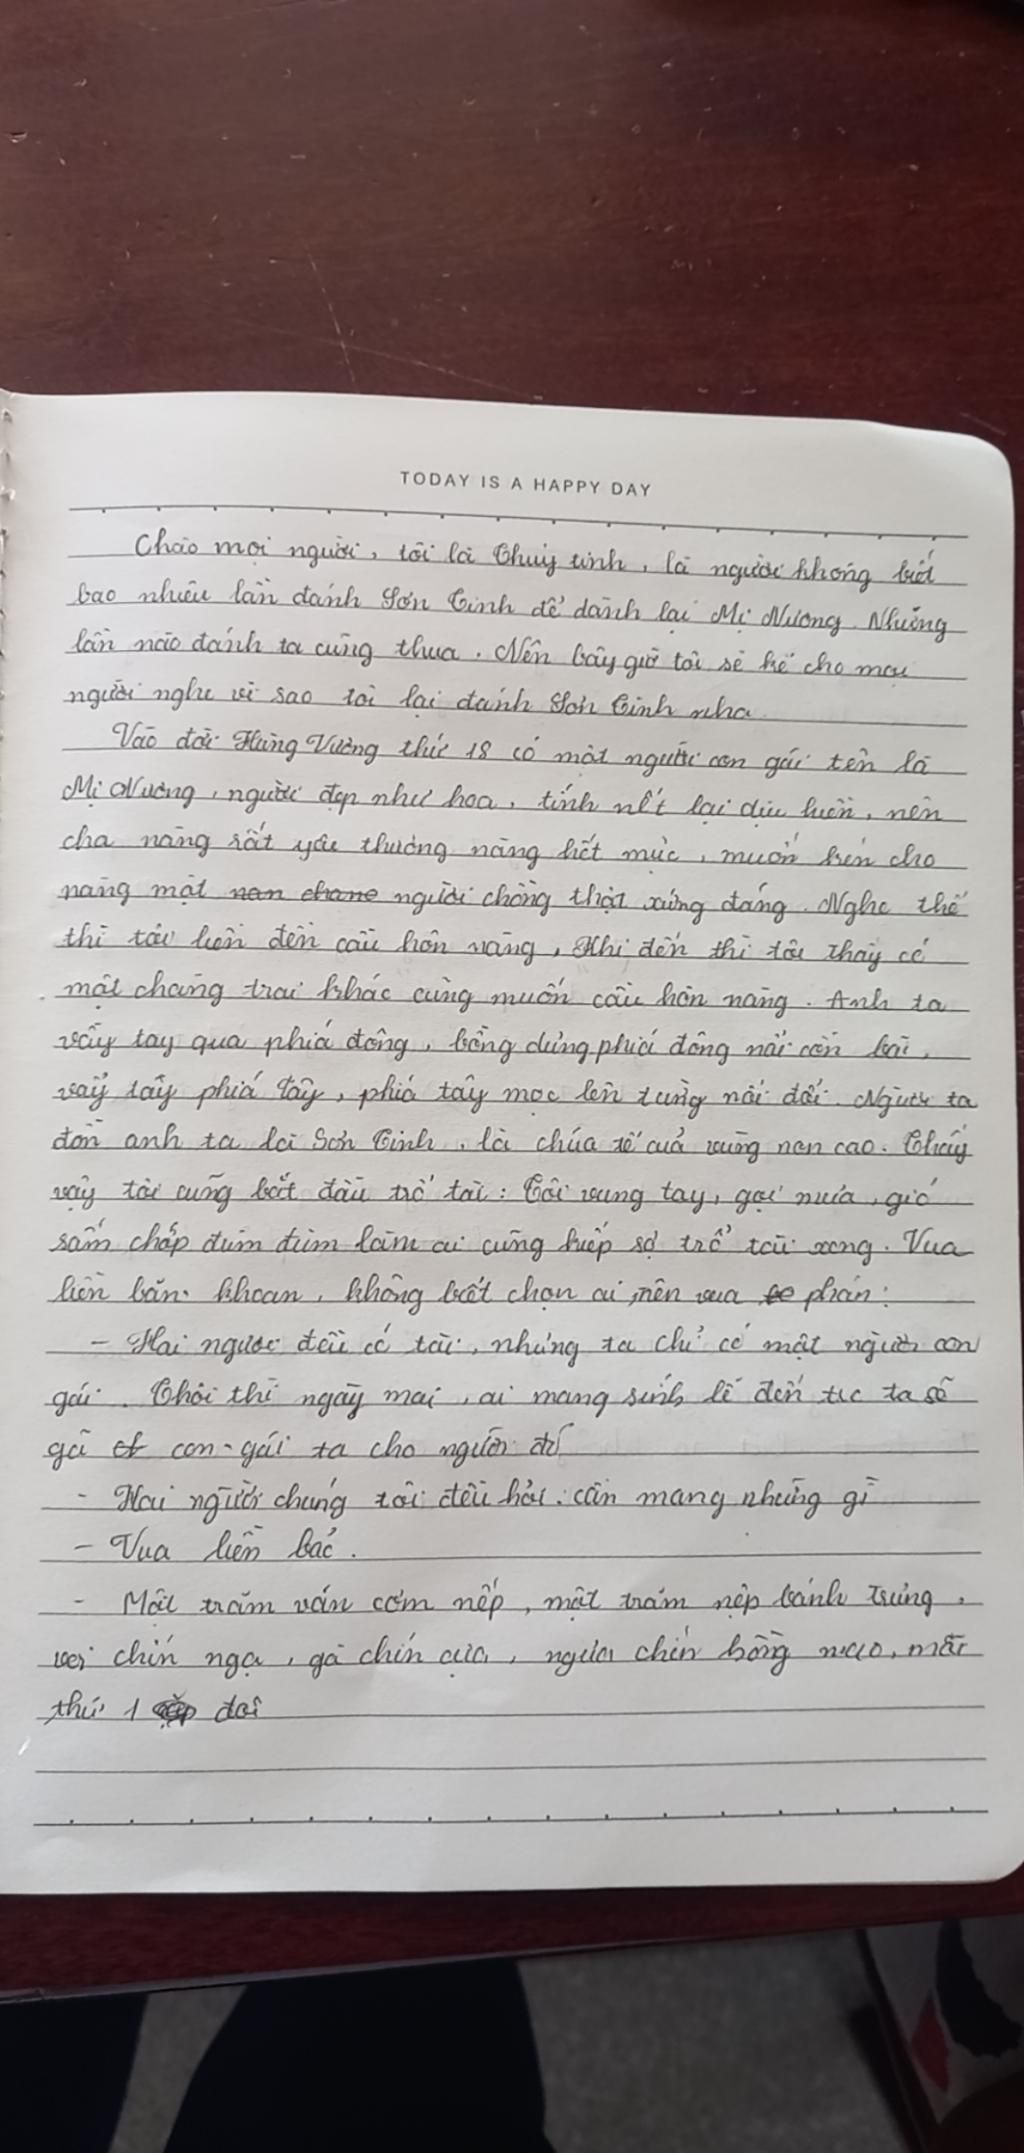 TODAY IS A HAPPY DAY
Chào mọi người, tôi là Thuỷ tinh, là người không biết
bao nhiêu lần đánh Sơn Tinh để dành lại Mị Nương. Nhưng
lần nào đánh ta cũng thua. Nên bây giờ tôi sẽ kể cho mọi
người nghe vì sao tôi lại đánh Sơn Tinh nha
Vào đời Hùng Vương thứ 18 có một người con gái tên là
Mị Nương, người đẹp như hoa, tính nết lại dịu hiền, nên
cha nàng rất yêu thương nàng hết mực, muốn kén cho
nàng một người chồng thật xứng đáng. Nghe thế
thì tôi liền đến cầu hôn nàng, Khi đến thì tôi thấy có
một chàng trai khác cũng muốn cầu hôn nàng. Anh ta
vẫy tay qua phía đông, bỗng dưng phía đông nổi cồn bãi,
vẫy tay phía Tây, phía tây mọc lên từng núi đồi. Người ta
đồn anh ta là Sơn Tinh, là chúa tể của vùng non cao. Thấy
vậy tôi cũng bắt đầu trổ tài: Tôi vung tay, gọi mưa, gió
sấm chớp đùm đùm làm ai cũng khiếp sợ trổ tài xong. Vua
liền băn khoan, không biết chọn ai, nên vua phán:
- Hai người đều có tài, nhưng ta chỉ có một người con
gái. Thôi thì ngày mai, ai mang sính lễ đến trc ta sẽ
gả con gái ta cho người đó
- Hai người chúng tôi đều hỏi: cần mang những gì
- Vua liền bảo.
- Một trăm ván cơm nếp, một trăm nệp bánh trưng,
voi chín ngà, gà chín cựa, ngựa chín hồng mao, mỗi
thứ 1 đôi